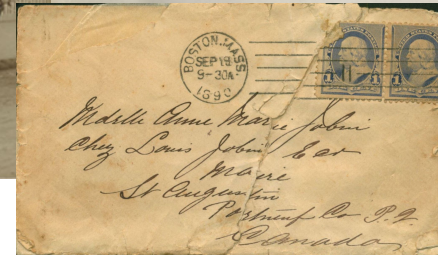 BOSTON, MASS.
SEP 19
9-30A
1890
1 1
Mdelle Anne Marie Jobin
Chez Louis Jobin Ecr
Maire
St Augustin
Portneuf Co P. Q.
Canada